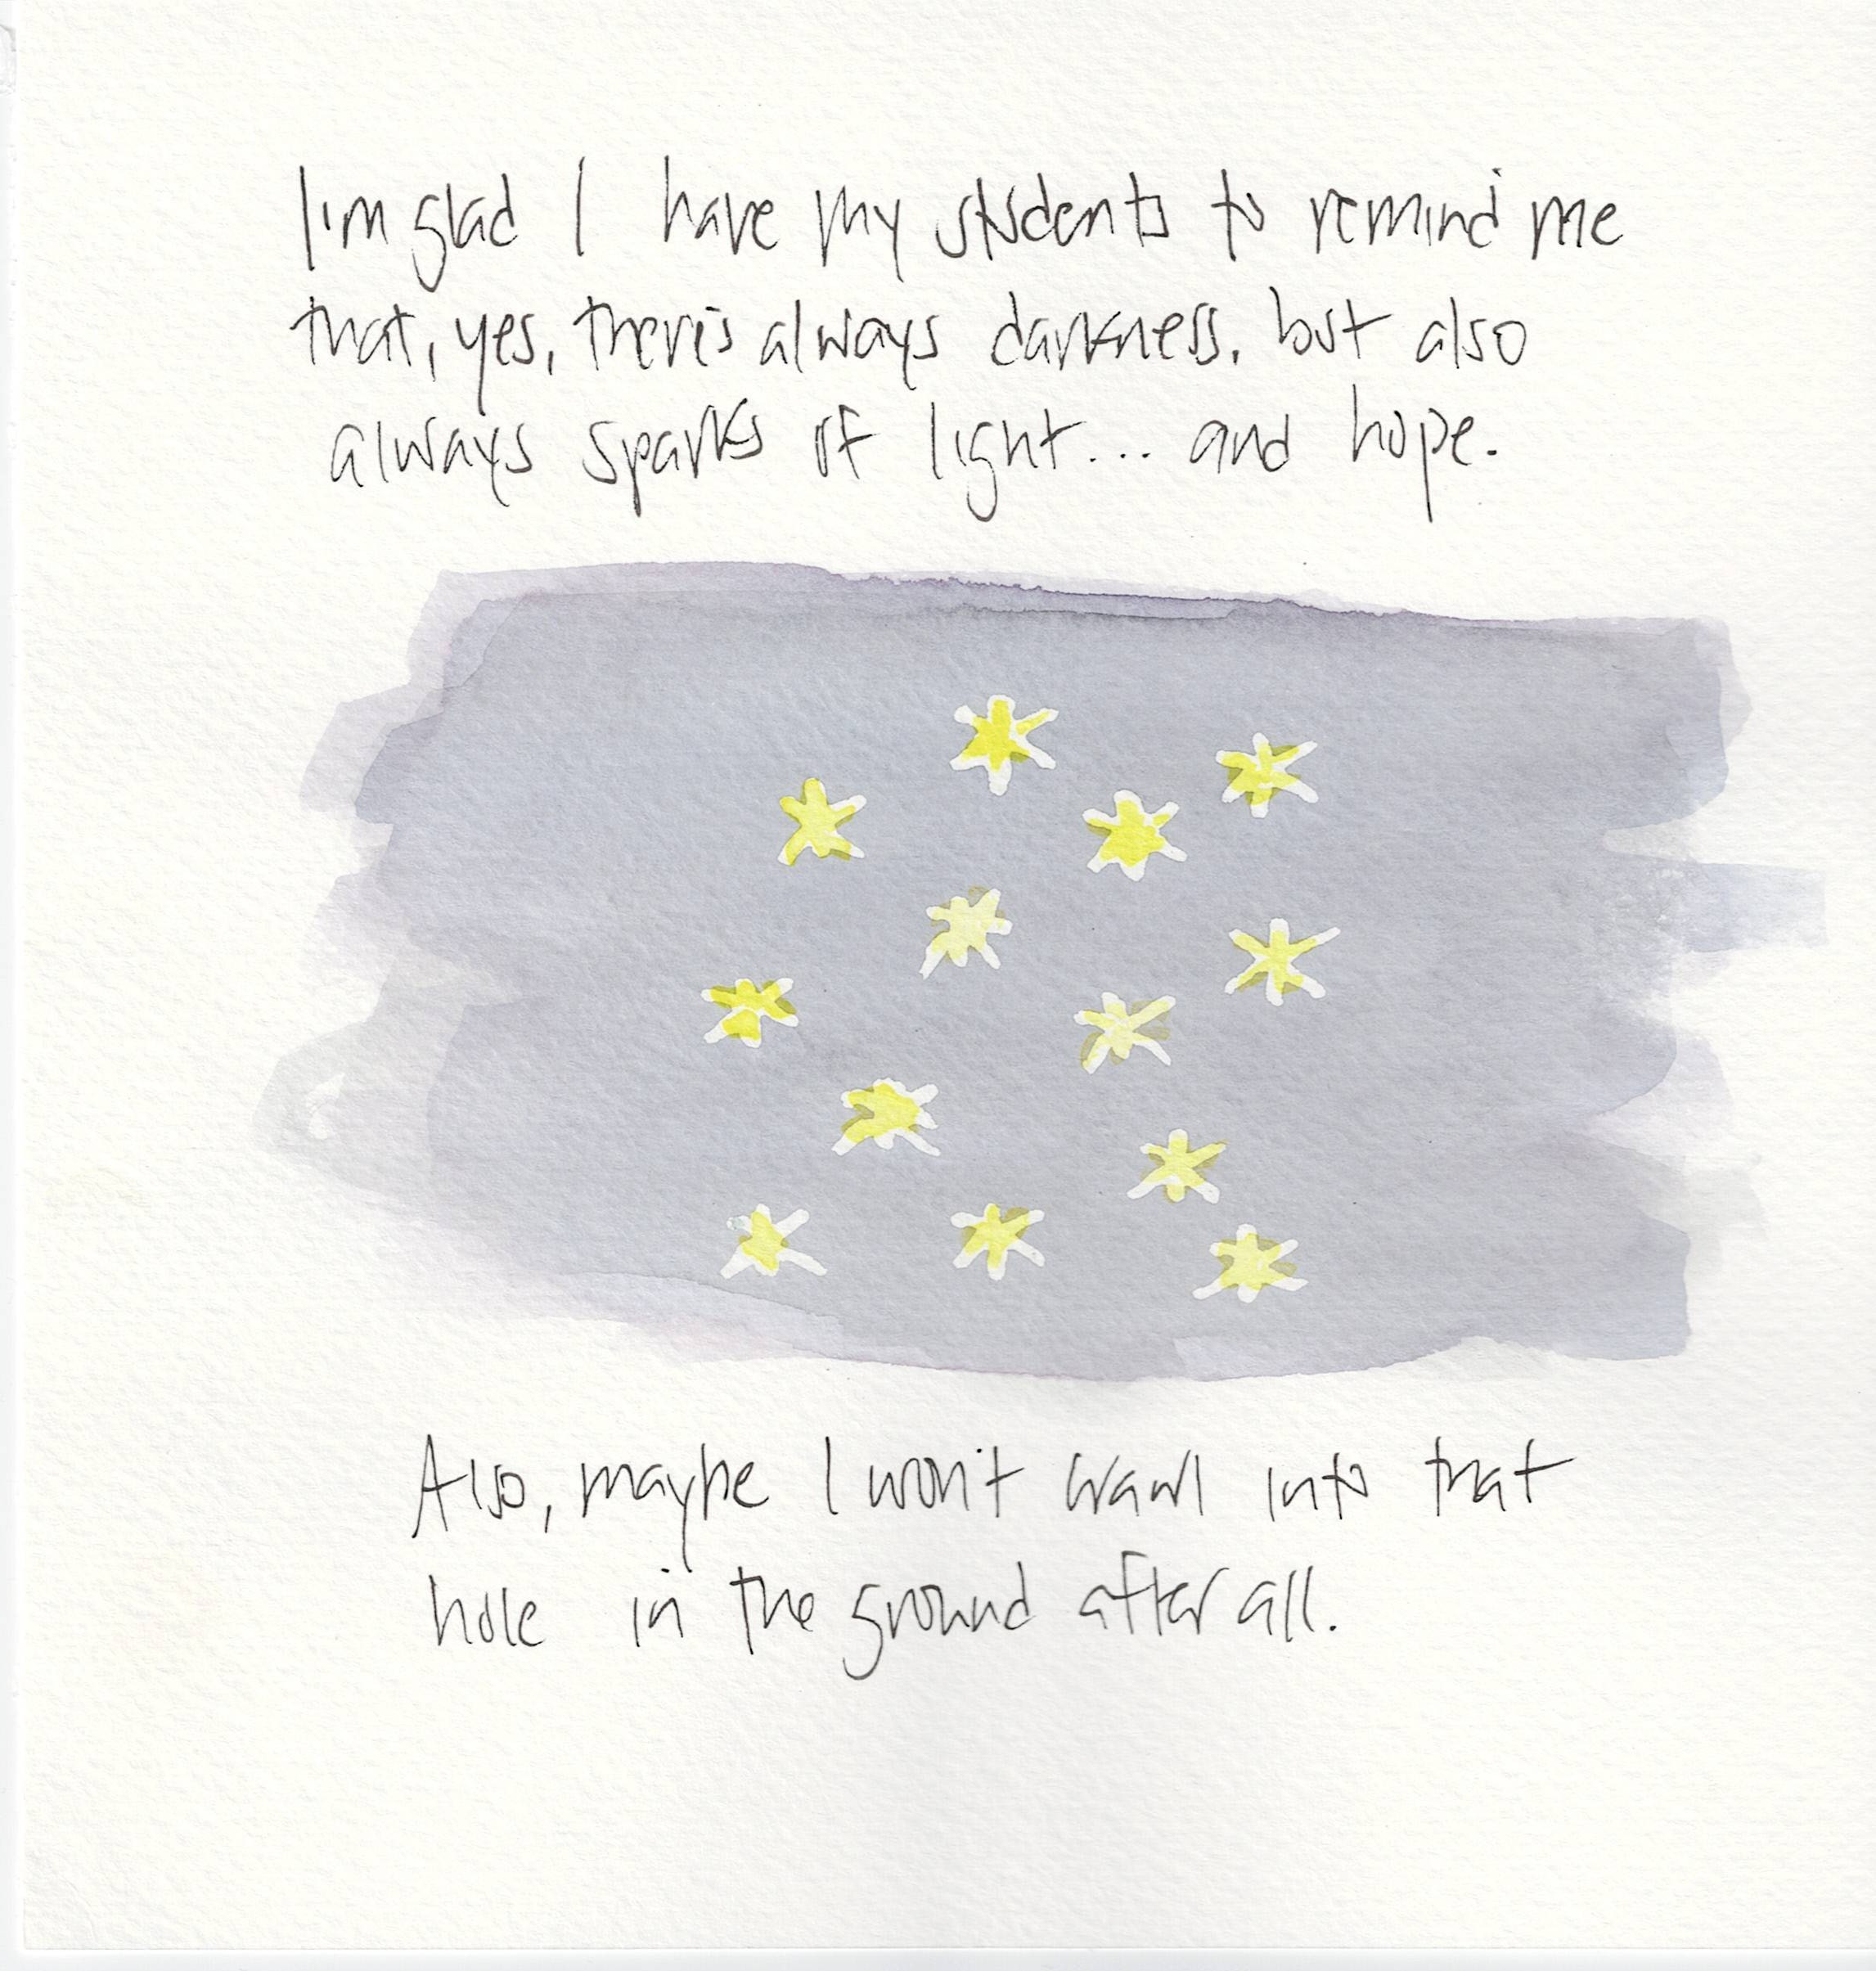 I'm glad I have my students to remind me
that, yes, there's always darkness. but also
always sparks of light... and hope.
Also, maybe I won't crawl into that
hole in the ground after all.